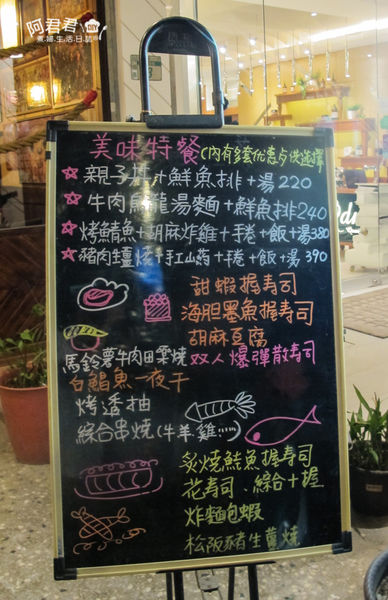 阿君君 DIY
煮婦生活日誌
美味特餐(內有多套优惠与供選擇
親子丼汁鮮魚排+湯220
牛肉烏龍湯麵+鮮魚排240
烤鯖魚+胡麻炸雞+手卷+飯+湯380
豬肉生薑燒+手工山葯+手卷+飯+湯 390
甜蝦握壽司
海胆墨魚握壽司
胡麻豆腐
馬鈴薯牛肉田樂燒
双人爆彈散壽司
白鯧魚一夜干
烤透抽
綜合串燒(牛.羊.雞...)
炙燒鮭魚握壽司
花壽司、綜合十握
炸麵包蝦
松阪豬生薑燒